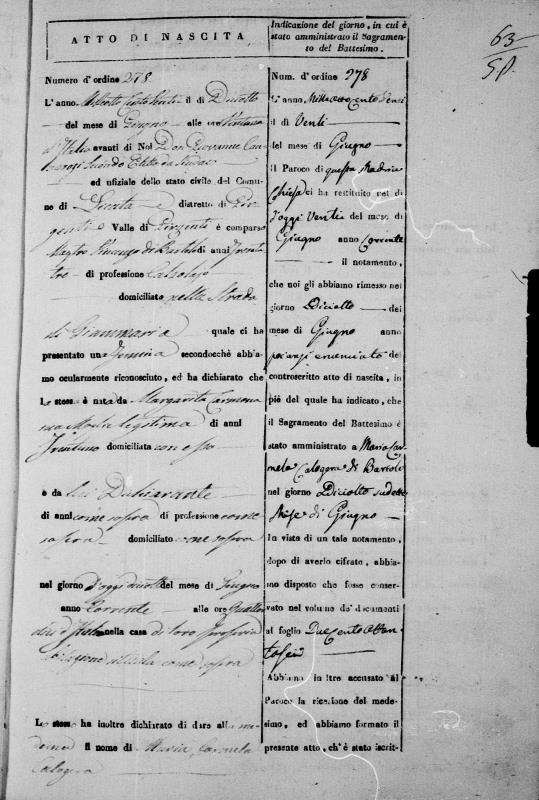 63
ATTO DI NASCITA
Numero d'ordine 278.
L'anno il di Diciotto
del mese di Giugno alle ore
d'Italia avanti di Noi Don Giovanne
Secondo Eletto
ed ufiziale dello stato civile del Comu-
ne di Licata e distretto di Gir-
genti Valle di Girgenti è comparso
Mastro Vincenzo di Bartolo di anni Trenta
tre di professione Calzolajo
domiciliato nella Strada
di Gianmaria quale ci ha
presentato una Femina secondocchè abbia-
mo ocularmente riconosciuto, ed ha dichiarato che
La stessa è nata da Margarita Carmona
sua Moglie legitima di anni
Trentuno domiciliata con esso
e da lui Dichiarante
di anni come sopra di professione come
sopra domiciliato come sopra
nel giorno d'oggi diciotto del mese di Giugno
anno Corrente alle ore Quattor
dici d'Italia nella casa di loro propria
abitazione come sopra
Lo stesso ha inoltre dichiarato di dare alla me-
desima il nome di Maria Carmela
Calogera
Indicazione del giorno, in cui è
stato amministrato il Sagramen-
to del Battesimo.
Num. d'ordine 278
L'anno Milleottocento Venti
il di Venti
del mese di Giugno
il Paroco di questa Madrice
Chiesa ci ha restituito nel di
d'oggi Venti del mese di
Giugno anno Corrente
il notamento,
che noi gli abbiamo rimesso nel
giorno Diciotto del
mese di Giugno anno
pocanzi enunciato del
controscritto atto di nascita, in
piè del quale ha indicato, che
il Sagramento del Battesimo è
stato amministrato a Maria Car-
mela Calogera di Bartolo
nel giorno Diciotto sudetto
Mese di Giugno
In vista di un tale notamento,
dopo di averlo cifrato, abbia-
mo disposto che fosse conser-
vato nel volume de' documenti
al foglio Duecento Ottan
tasei
Abbiamo in ltre accusato al
Paroco la ricezione del mede-
simo, ed abbiamo formato il
presente atto, ch'è stato iscrit-